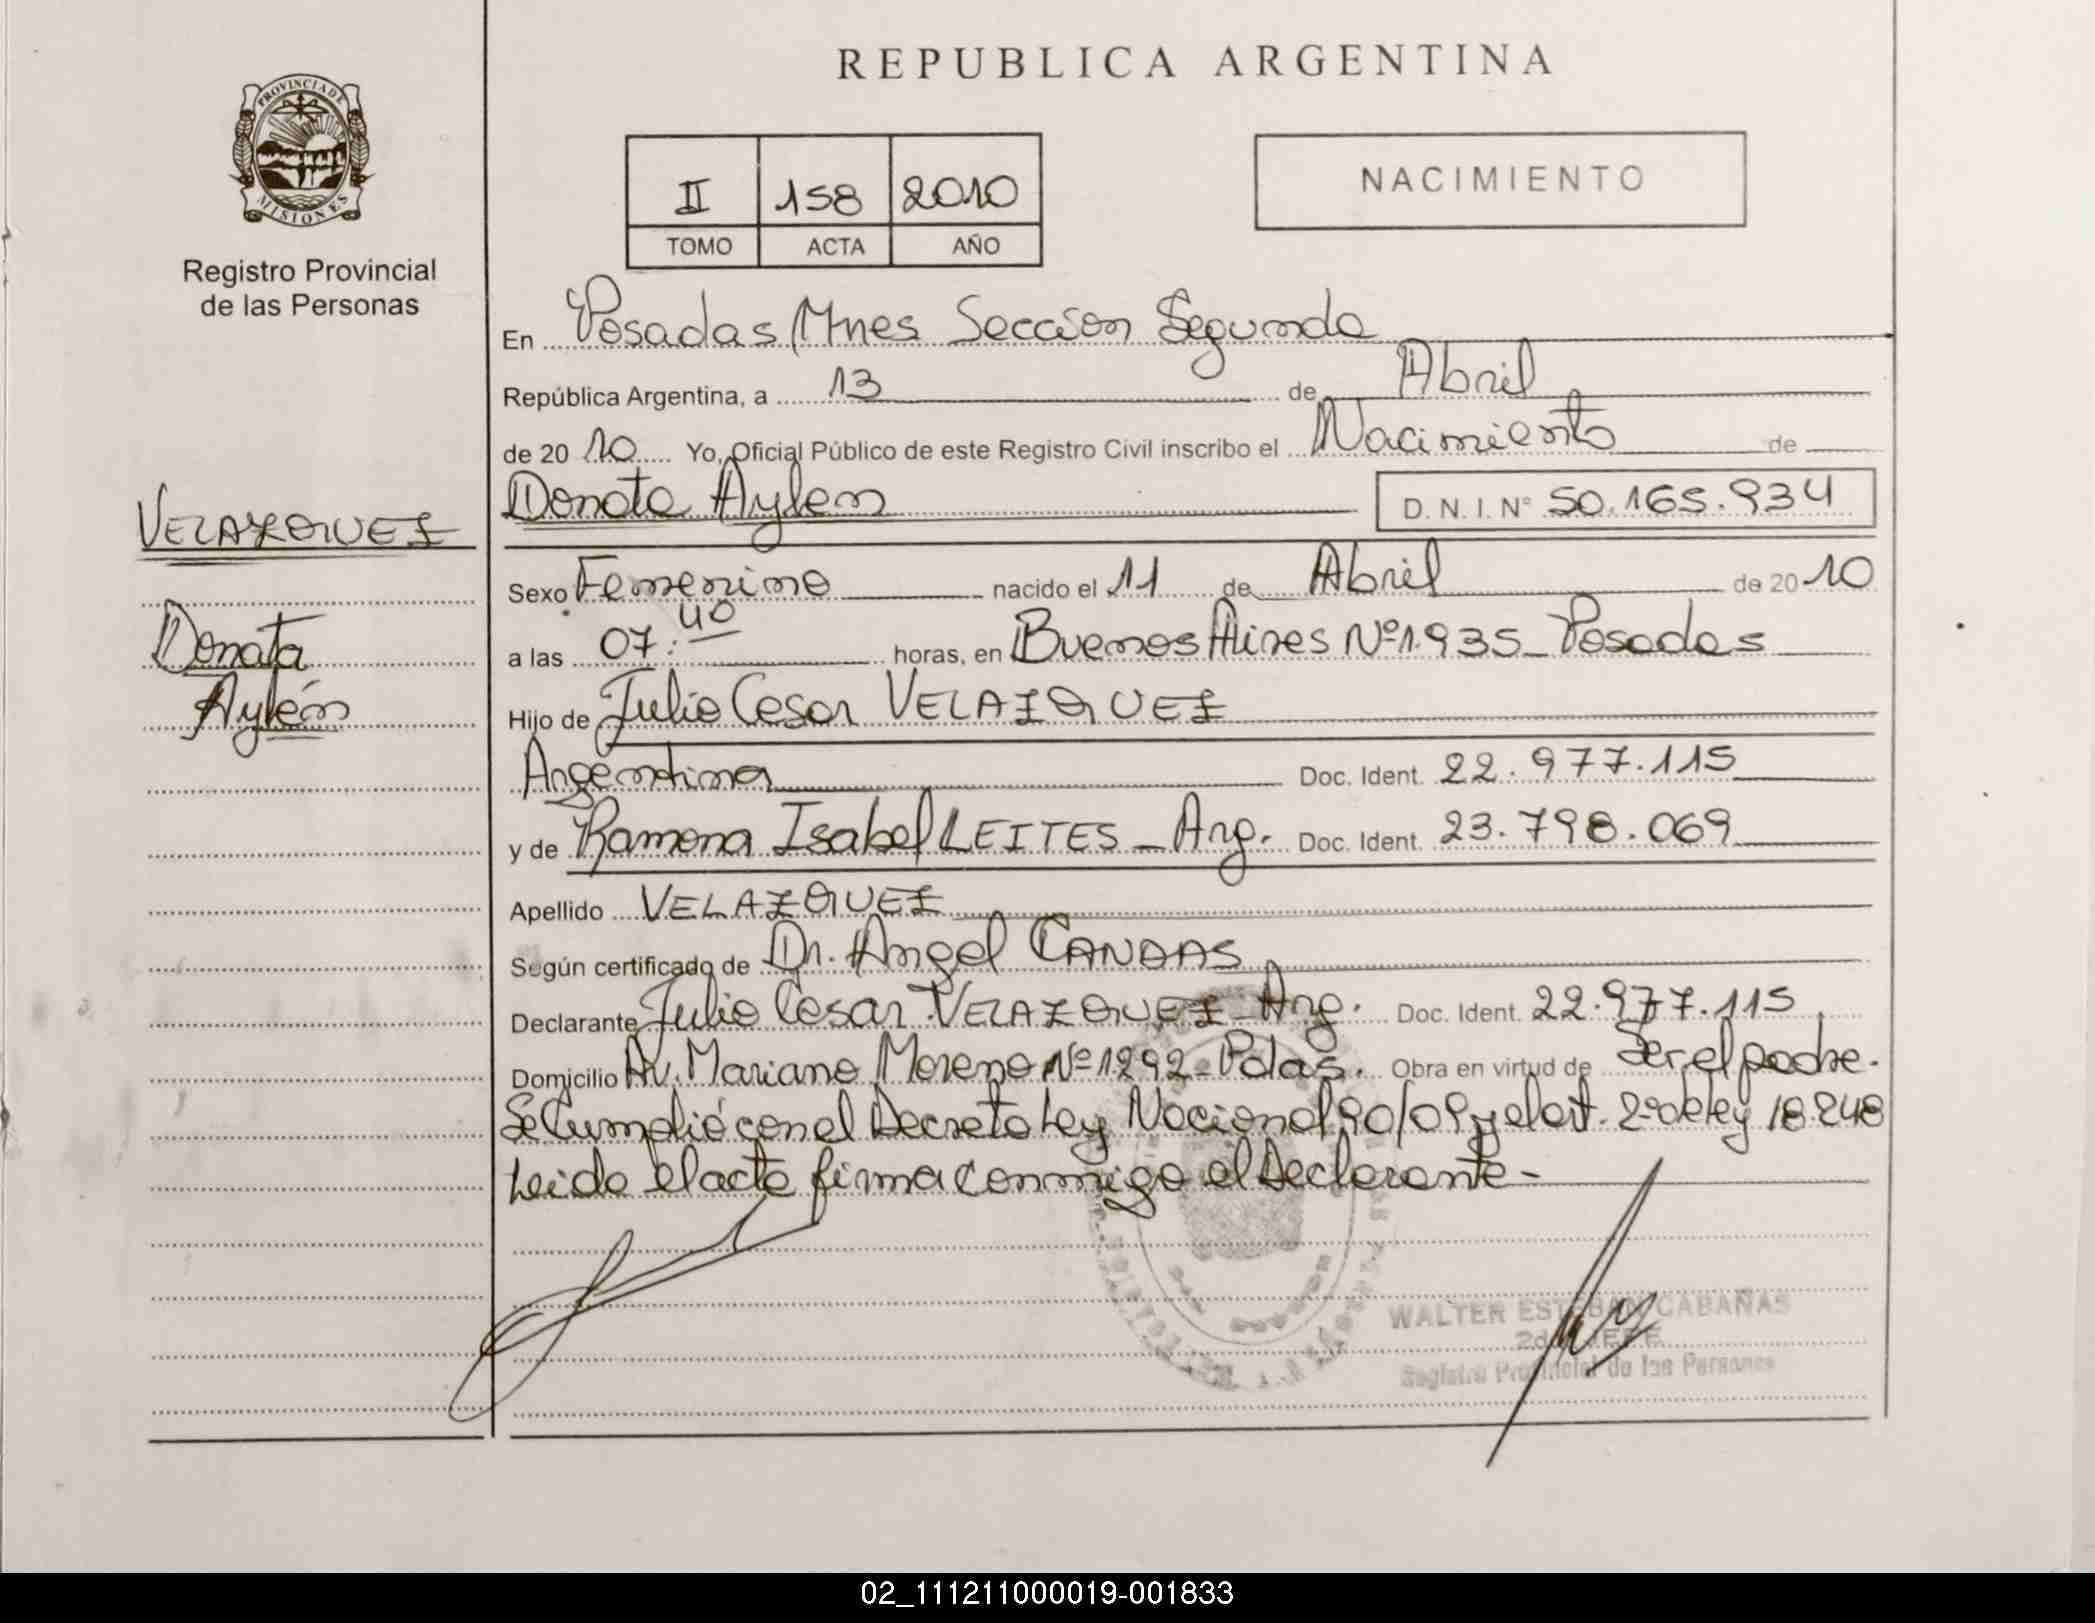 REPUBLICA ARGENTINA
PROVINCIA DE
MISIONES
Registro Provincial
de las Personas
II 158 2010
TOMO ACTA AÑO
NACIMIENTO
En Posadas Mnes Sección Segunda
República Argentina, a 13 de Abril
de 2010 Yo, Oficial Público de este Registro Civil inscribo el Nacimiento de
VELAZQUEZ
Donata Aylén
Donata Aylen D.N.I. Nº 50.165.934
Sexo Femenino nacido el 11 de Abril de 2010
a las 07:40 horas, en Buenos Aires Nº 1.935 - Posadas
Hijo de Julio Cesar VELAZQUEZ
Argentina Doc. Ident. 22.977.115
y de Ramona Isabel LEITES - Arg. Doc. Ident. 23.798.069
Apellido VELAZQUEZ
Según certificado de Dr. Angel CANDAS
Declarante Julio Cesar VELAZQUEZ - Arg. Doc. Ident. 22.977.115
Domicilio Av. Mariano Moreno Nº 1292 - Pdas. Obra en virtud de Ser el padre.
Se Cumplió con el Decreto Ley Nacional 90/09 y el art. 2º de ley 18.248
Leido el acta firma conmigo el Declarante -
WALTER ESTEBAN CABAÑAS
2do JEFE
Registro Provincial de las Personas
02_111211000019-001833